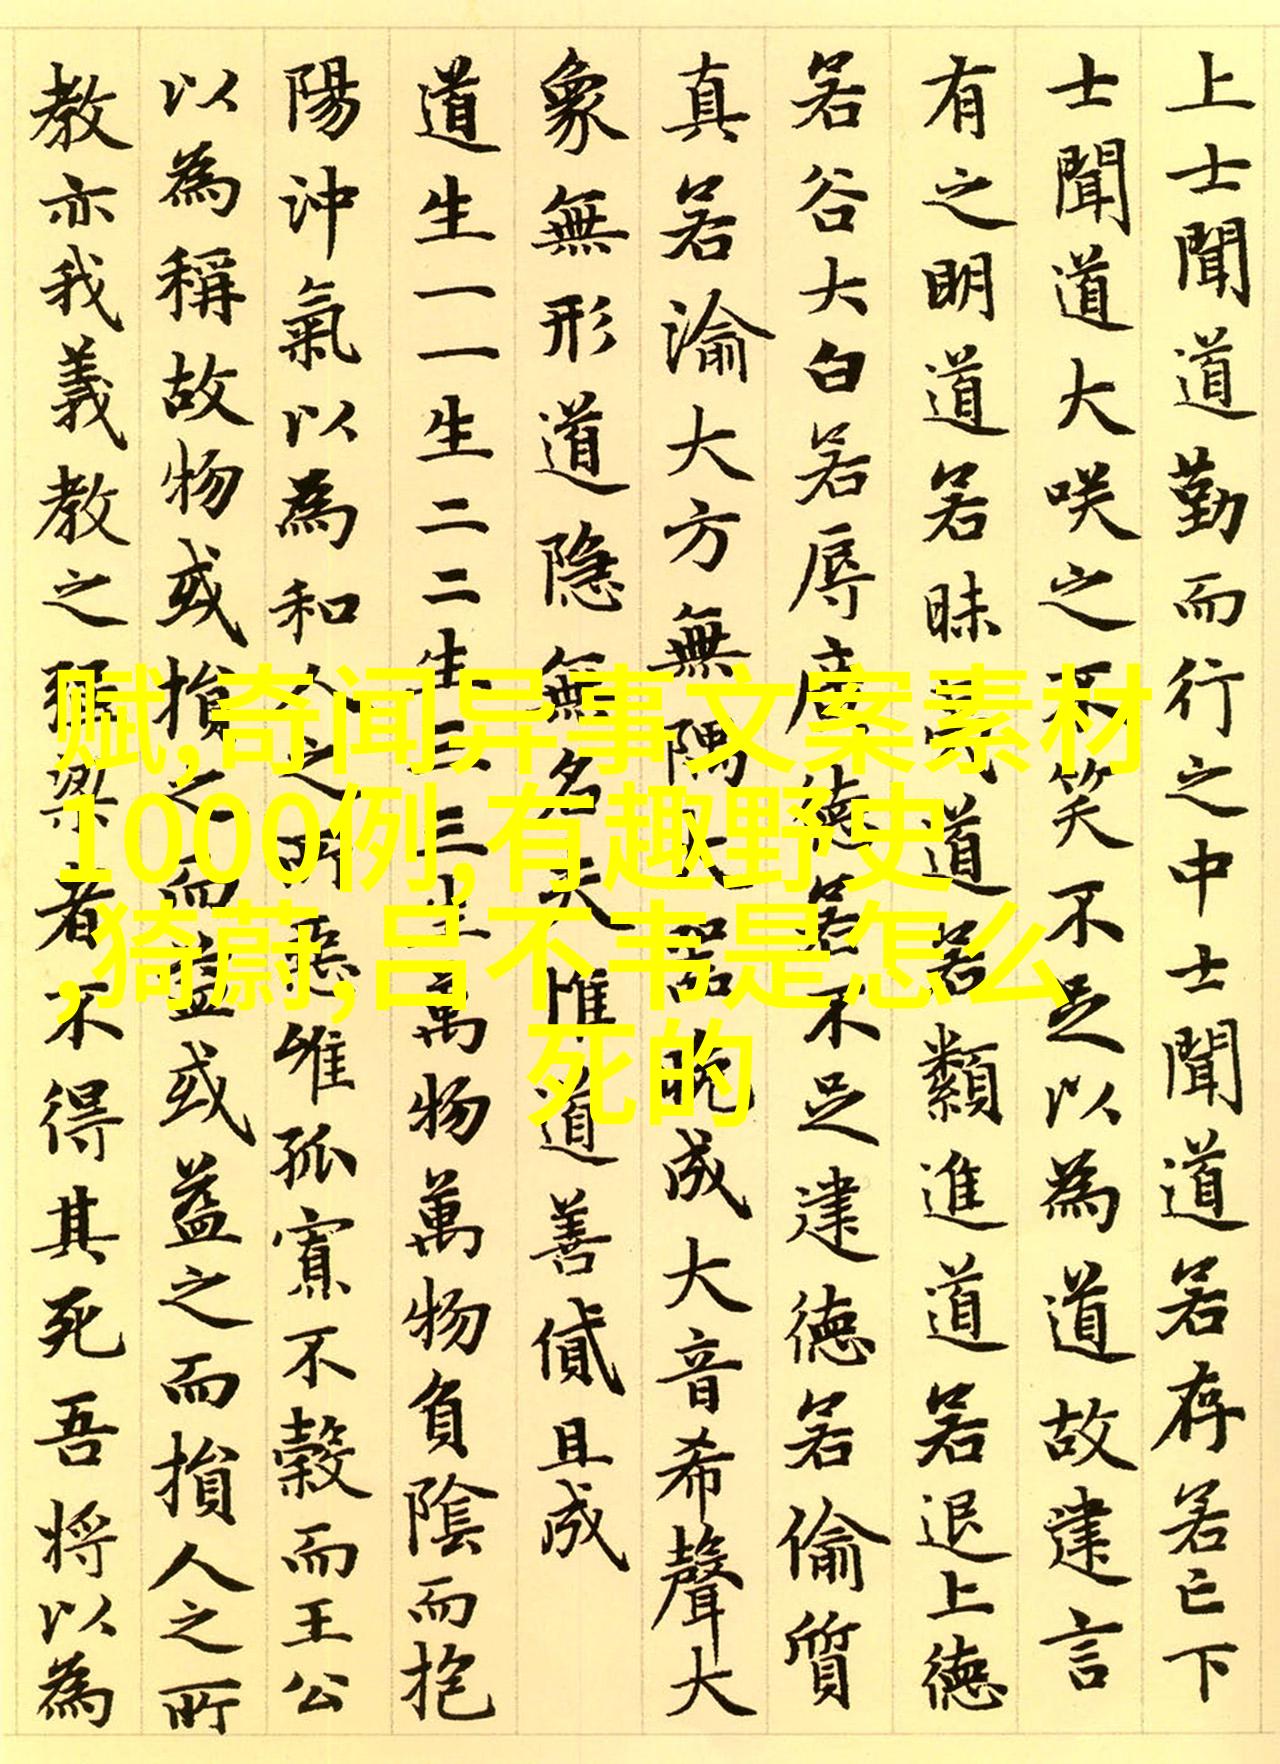 上士聞道勤而行之中士聞道若存若亡下
士聞道大咲之不笑不足以為道故建言
有之明道若昧夷道若類進道若退上德
若谷大白若辱廣德若不足建德若偷質
真若渝大方無隅大器晚成大音希聲大
象無形道隐無名夫惟道善貸且成
道生一一生二二生三三生萬物萬物負陰而抱
陽沖氣以為和人之所惡唯孤寡不穀而王公
以為稱故物或損之而益或益之而損人之所
教亦我義教之強梁者不得其死吾将以為
赋,奇闻异事文案素材
1000例,有趣野史
,猗蔚,吕不韦是怎么
死的